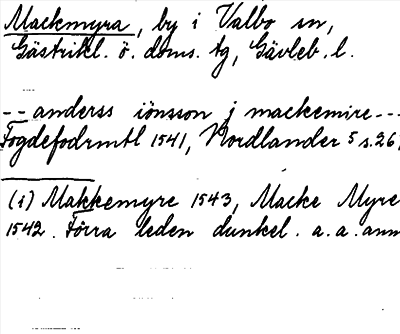 Mackmyra, by i Valbo sn,
Gästrikl. ö. doms. tg, Gävleb. l.
-- anderss iönsson j mackemire---
Fogdefodrmtl 1541, Nordlander 5 s. 267
(i) Makkemyre 1543, Macke Myre
1542. Förra leden dunkel. a. a. anm